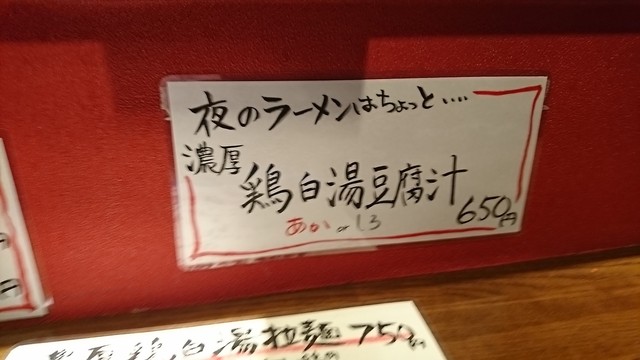 夜のラーメンはちょっと‥‥
濃厚
鶏白湯豆腐汁
650円
あか or しろ
円
濃厚鶏白湯拉麺 750円